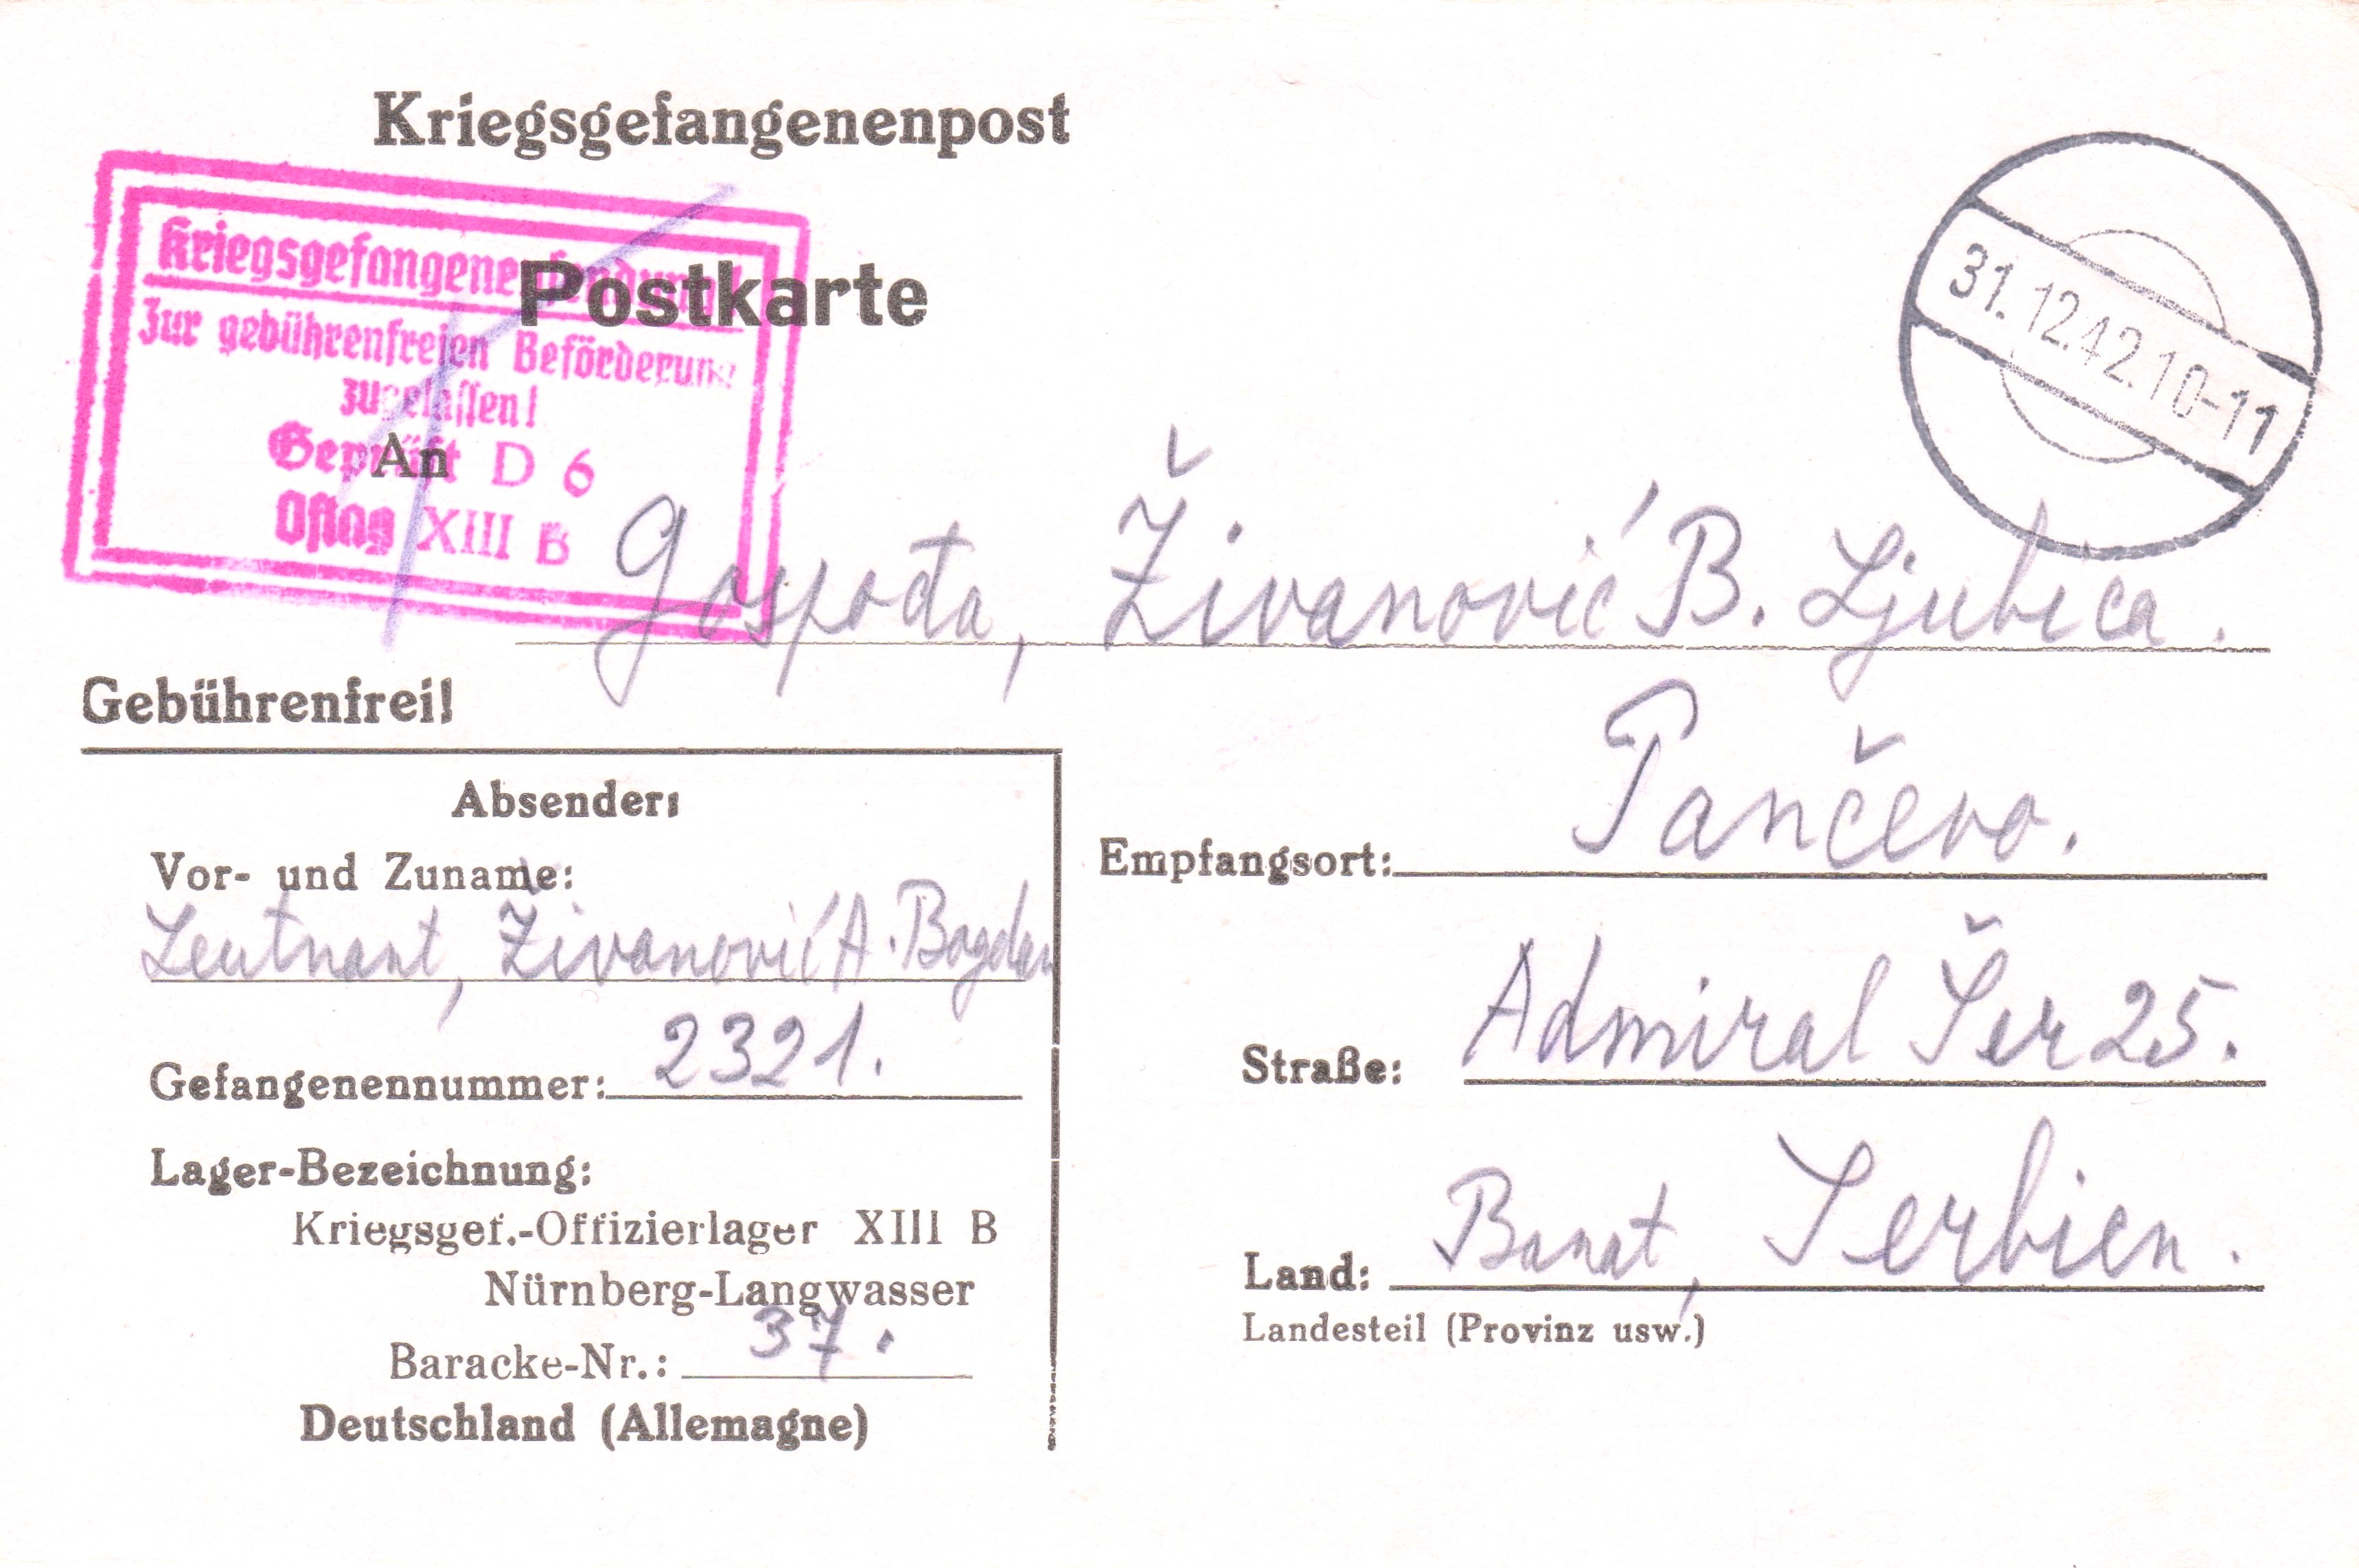 Kriegsgefangenenpost
Postkarte
Kriegsgefangenensendung!
Zur gebührenfreien Beförderung
zugelassen!
Geprüft D 6
Oflag XIII B
31.12.42.10-11
An
Gospođa, Živanović B. Ljubica.
Gebührenfrei!
Absender:
Vor- und Zuname:
Leutnant, Živanović A. Bogdan
Gefangenennummer: 2321.
Lager-Bezeichnung:
Kriegsgef.-Offizierlager XIII B
Nürnberg-Langwasser
Baracke-Nr.: 37.
Deutschland (Allemagne)
Empfangsort: Pančevo.
Straße: Admiral Šer 25.
Land: Banat, Serbien.
Landesteil (Provinz usw.)